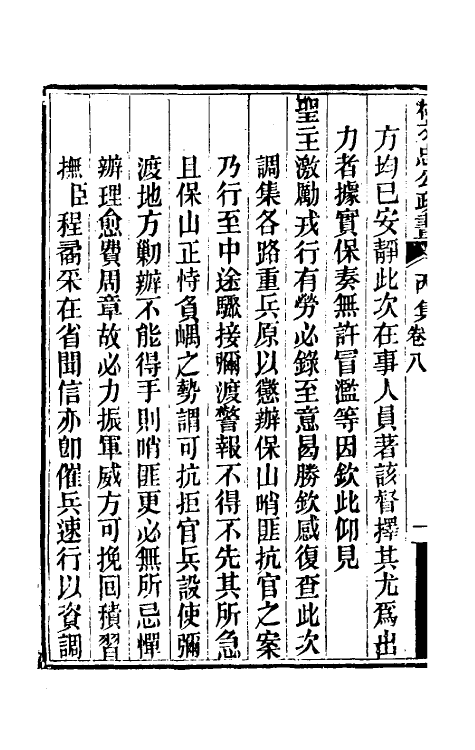 方均已安靜此次在事人員著該督擇其尤爲出
力者據實保奏無許冒濫等因欽此仰見
聖主激勵戎行有勞必錄至意曷勝欽感復查此次
調集各路重兵原以懲辦保山哨匪抗官之案
乃行至中途驟接彌渡警報不得不先其所急
且保山正恃負嵎之勢謂可抗拒官兵設使彌
渡地方勦辦不能得手則哨匪更必無所忌憚
辦理愈費周章故必力振軍威方可挽回積習
撫臣程矞采在省聞信亦卽催兵速行以資調
丙集卷八